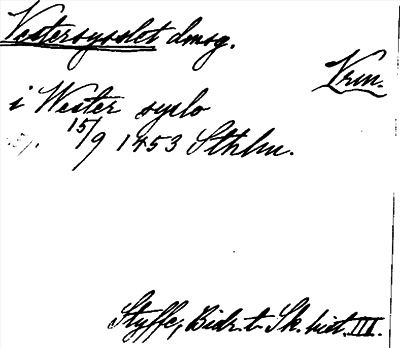 Vestersysslet dmsg.
Vrm.
i Wester syslo
15/9 1453 Sthlm.
Styffe, Bidr. t. Sk. hist. III.